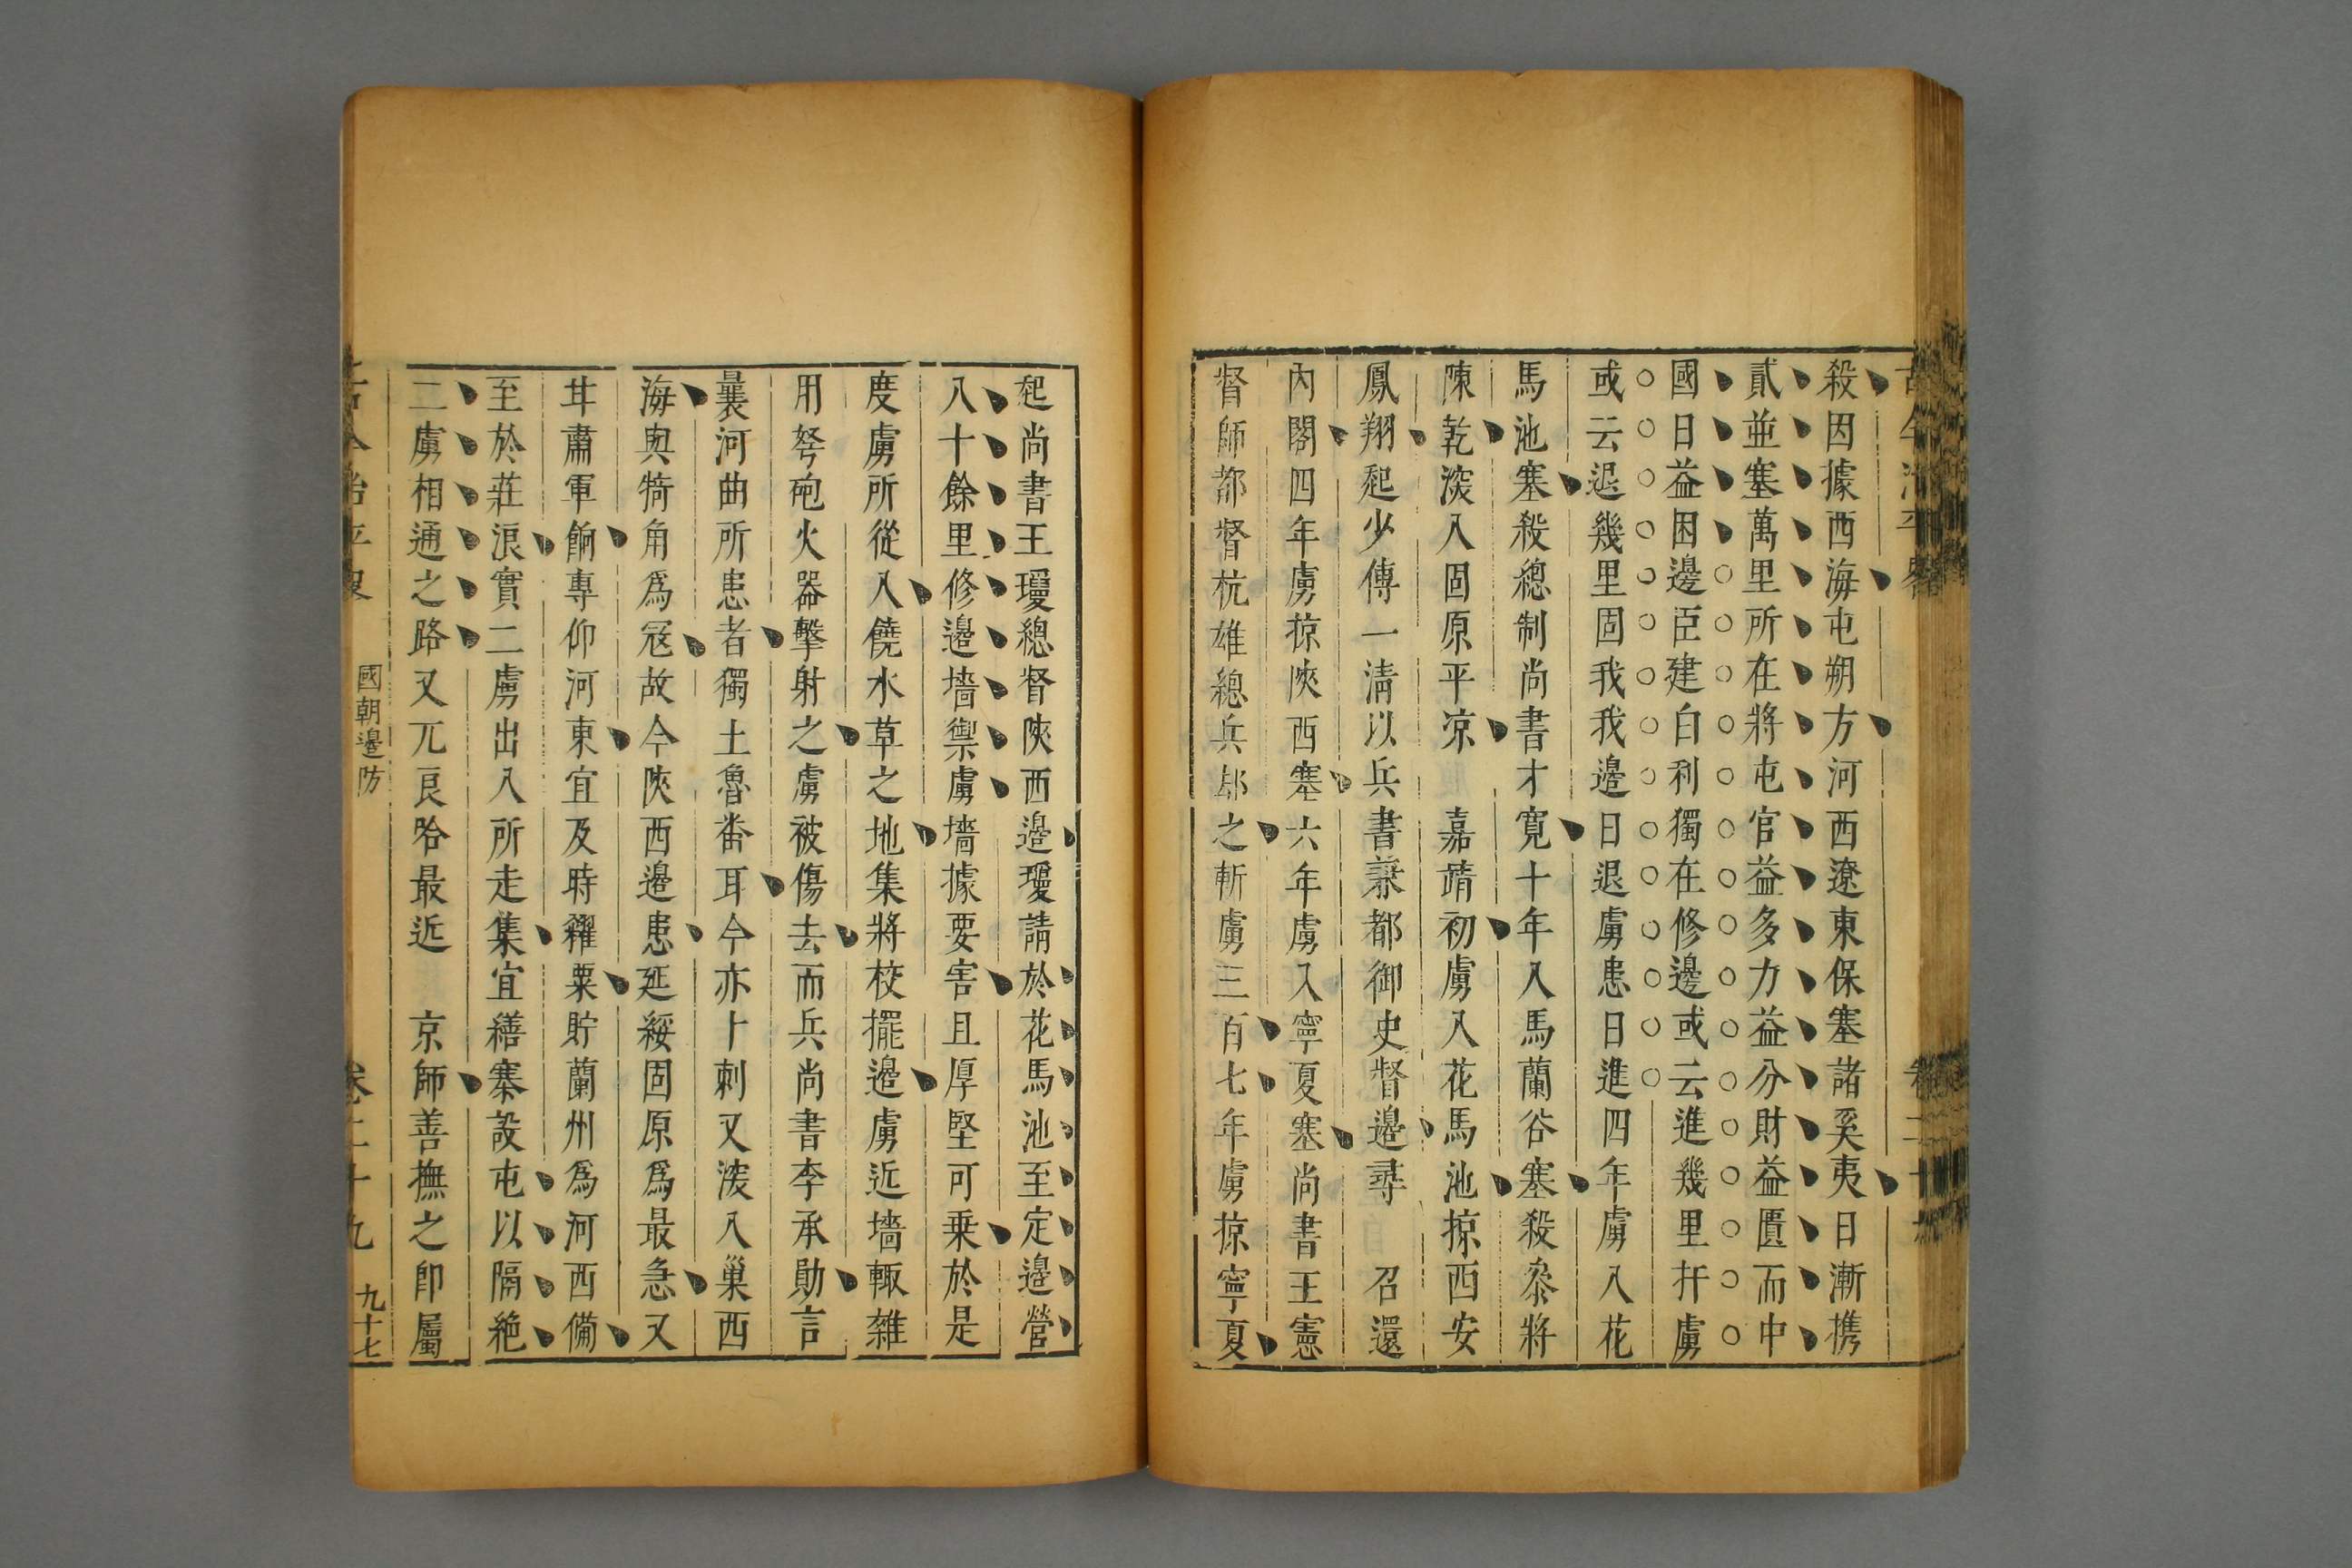 殺因據西海屯朔方河西遼東保塞諸奚夷日漸携
貳並塞萬里所在將屯官益多力益分財益匱而中
國日益困邊臣建白利獨在修邊或云進幾里扞虜
或云退幾里固我我邊日退虜患日進四年虜入花
馬池塞殺總制尚書才寬十年入馬蘭谷塞殺叅將
陳乾深入固原平凉 嘉靖初虜入花馬池掠西安
鳳翔起少傅一清以兵書兼都御史督邊尋 召還
內閣四年虜掠陜西塞六年虜入寧夏塞尚書王憲
督師都督杭雄總兵 之斬虜三百七年虜掠寧夏
起尚書王瓊總督陜西邊瓊請於花馬池至定邊營
八十餘里修邊墻禦虜墻據要害且厚堅可乗於是
度虜所從入饒水草之地集將校擺邊虜近墻輙雜
用弩砲火器擊射之虜被傷去而兵尚書李承勛言
曩河曲所患者獨土魯畨耳今亦卜刺又深入巢西
海與犄角爲寇故今陜西邊患延綏固原爲最急又
甘肅軍餉專仰河東宜及時糴粟貯蘭州爲河西備
至於莊浪實二虜出入所走集宜繕寨設屯以隔絶
二虜相通之路又兀良哈最近 京師善撫之卽屬
古今治平畧 國朝邊防 卷二十九 九十七